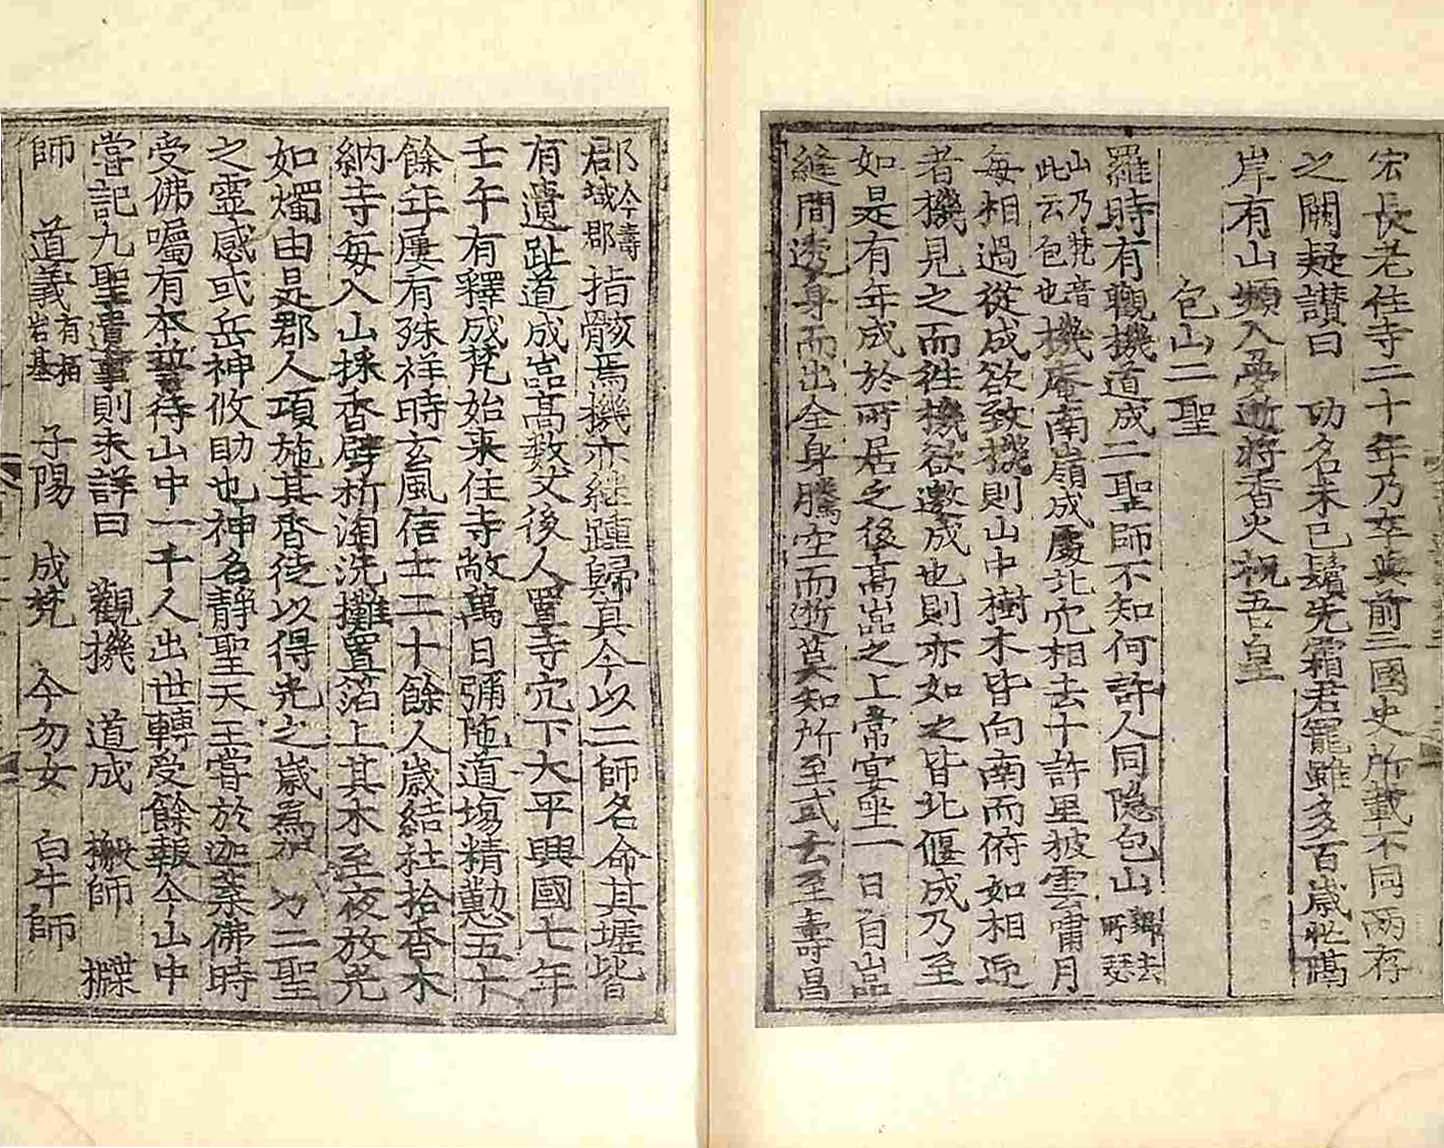 宏長老住寺二十年乃卒與前三國史所載不同兩存
之闕疑讃曰 功名未已鬂先霜君寵雖多百歲忙隔
岸有山頻入夢逝將香火祝吾皇
包山二聖
羅時有觀機道成二聖師不知何許人同隱包山鄉云所瑟
山乃梵音此云包也機庵南嶺成處北穴相去十許里披雲嘯月
每相過從成欲致機則山中樹木皆向南而俯如相迎
者機見之而徃機欲邀成也則亦如之皆北偃成乃至
如是有年成於所居之後高嵓之上常宴㘴一日自嵓
縫間透身而出全身騰空而逝莫知所至或云至壽昌
郡今壽城郡指骸焉機亦継踵歸真今以二師名命其墟皆
有遺趾道成嵓高數丈後人置寺穴下大平興國七年
壬午有釋成梵始来住寺敞萬日彌陁道場精懃五十
餘年屢有殊祥時玄風信士二十餘人歲結社拾香木
納寺每入山採香劈析淘洗攤置箔上其木至夜放光
如燭由是郡人項施其香徒以得光之歲爲 乃二聖
之靈感或岳神攸助也神名靜聖天王嘗於迦葉佛時
受佛囑有本誓待山中一千人出世轉受餘報今山中
嘗記九聖遺事則未詳曰 觀機 道成 搬師 㯹
師 道義有栢岩基 子陽 成梵 今勿女 白牛師